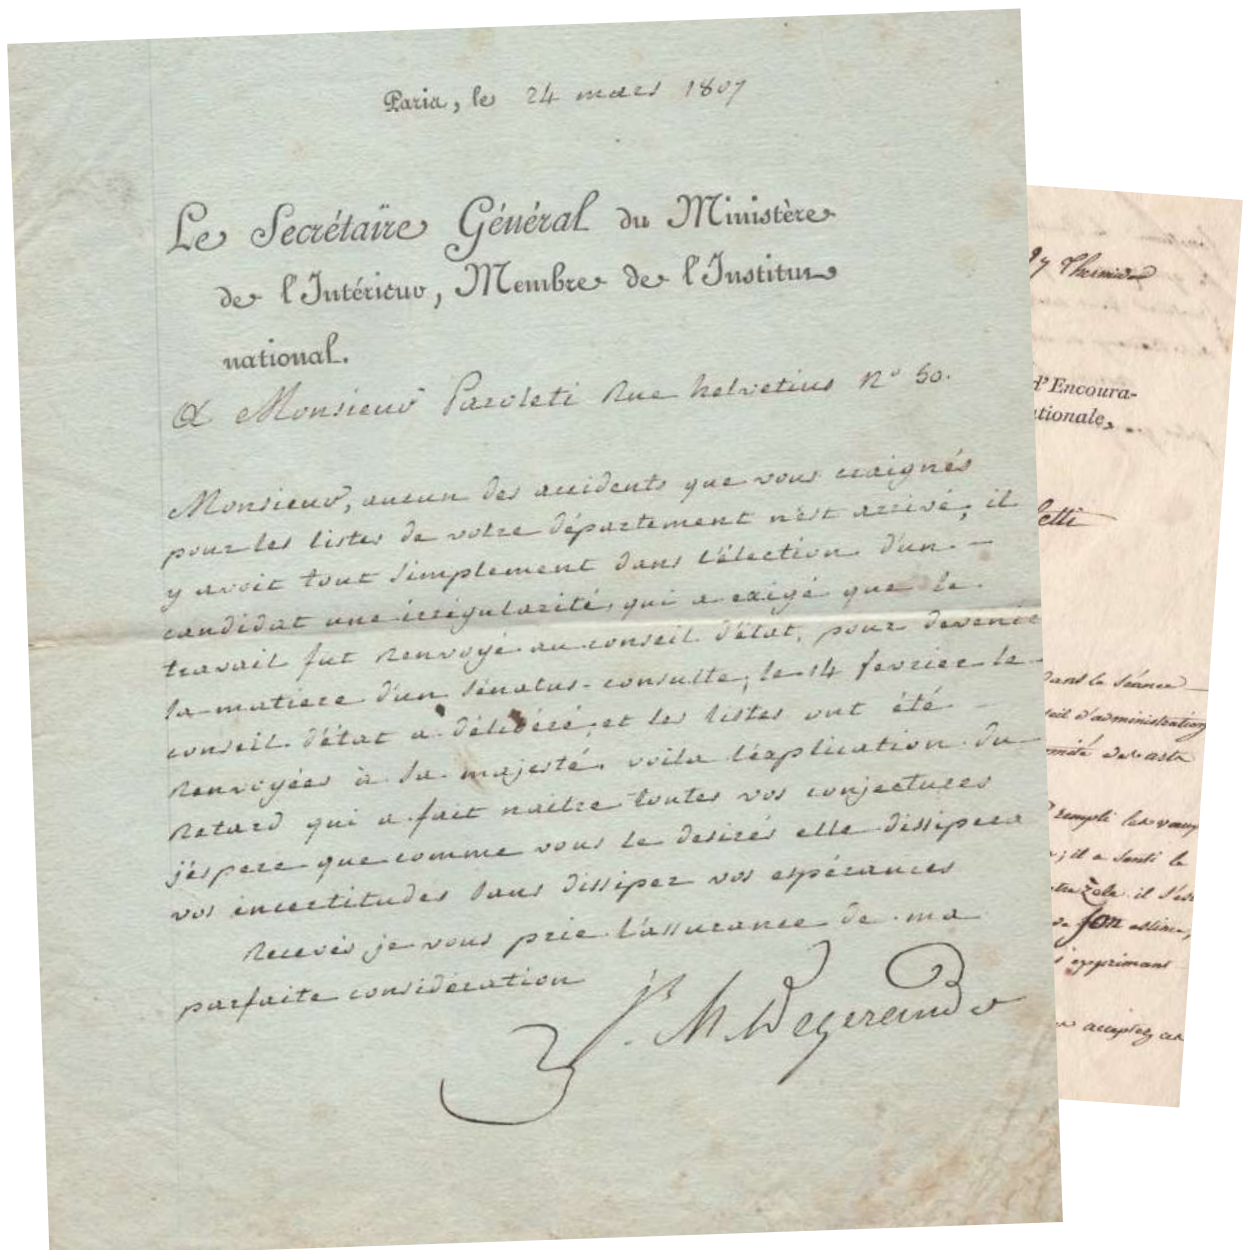 Paris, le 24 mars 1807
Le Secrétaire Général du Ministère
de l'Intérieur, Membre de l'Institut
national.
A Monsieur Paroleti Rue helvetius n° 50.
Monsieur, aucun des accidents que vous craignés
pour les listes de votre département n'est arrivé, il
y avoit tout simplement dans l'élection d'un
candidat une irrégularité, qui a exigé que le
travail fut renvoyé au conseil d'état, pour devenir
la matiere d'un sénatus-consulte, le 14 fevrier le
conseil d'état a délibéré, et les listes ont été
renvoyées à sa majesté. voila l'explication du
retard qui a fait naitre toutes vos conjectures
j'espere que comme vous le desirés elle dissipera
vos incertitudes sans dissiper vos espérances
Recevés je vous prie l'assurance de ma
parfaite considération
J. M. Degerando
27 Thermidor
d'Encoura-
tionale,
letti
dans la séance
seil d'administration
omité des arts
rempli les vœux
; il a senti le
zèle il s'est
de son estime,
s'exprimant
acceptez ces